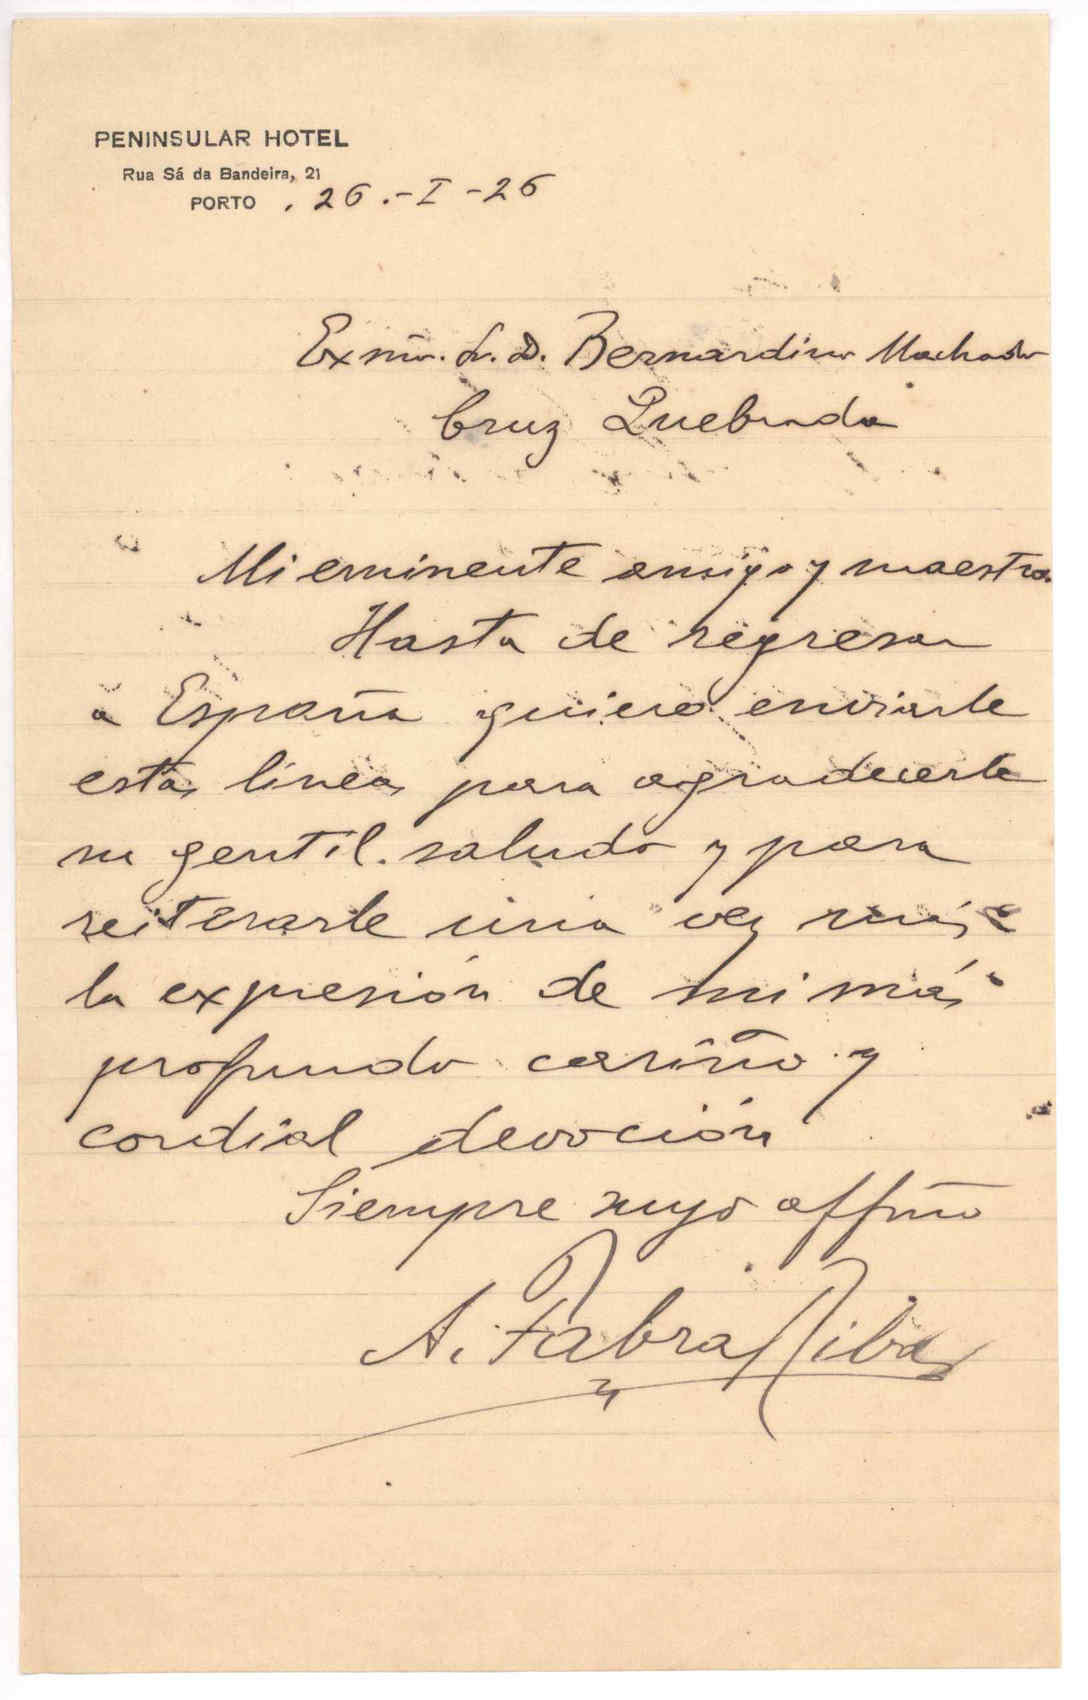 PENINSULAR HOTEL
Rua Sá da Bandeira, 21
PORTO, 26.-I-26
Exmo. Sr. D. Bernardino Machado
Cruz Quebrada
Mi eminente amigo y maestro.
Hasta de regresar
a España quiero enviarle
estas líneas para agradecerle
su gentil saludo y para
reiterarle una vez más
la expresión de mi más
profundo cariño y
cordial devoción
Siempre suyo affmo
A. Fabra Ribas